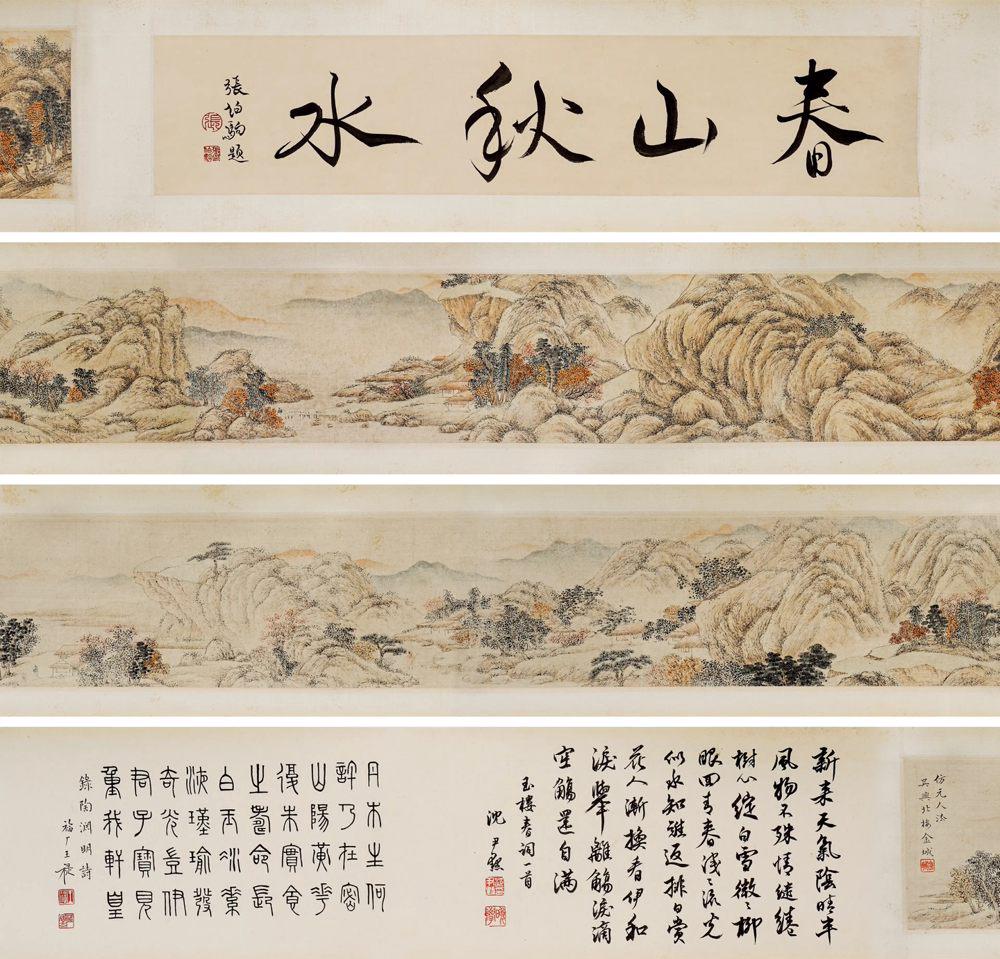 春山秋水
張伯駒題
仿元人法
吳興北樓金城
新來天氣陰晴半
風物不殊情繾綣
樹心綻白雪微〻柳
眼回青春淺〻流光
似水知難返排日賞
花人漸換看伊和
淚舉離觴淚滴
空觴還自滿
玉樓春詞一首
沈尹默
丹木生何
許乃在密
山陽黃花
復朱實食
之壽命長
白玉凝素
液瑾瑜發
奇光豈伊
君子寶見
重我軒皇
錄陶淵明詩
福厂王禔